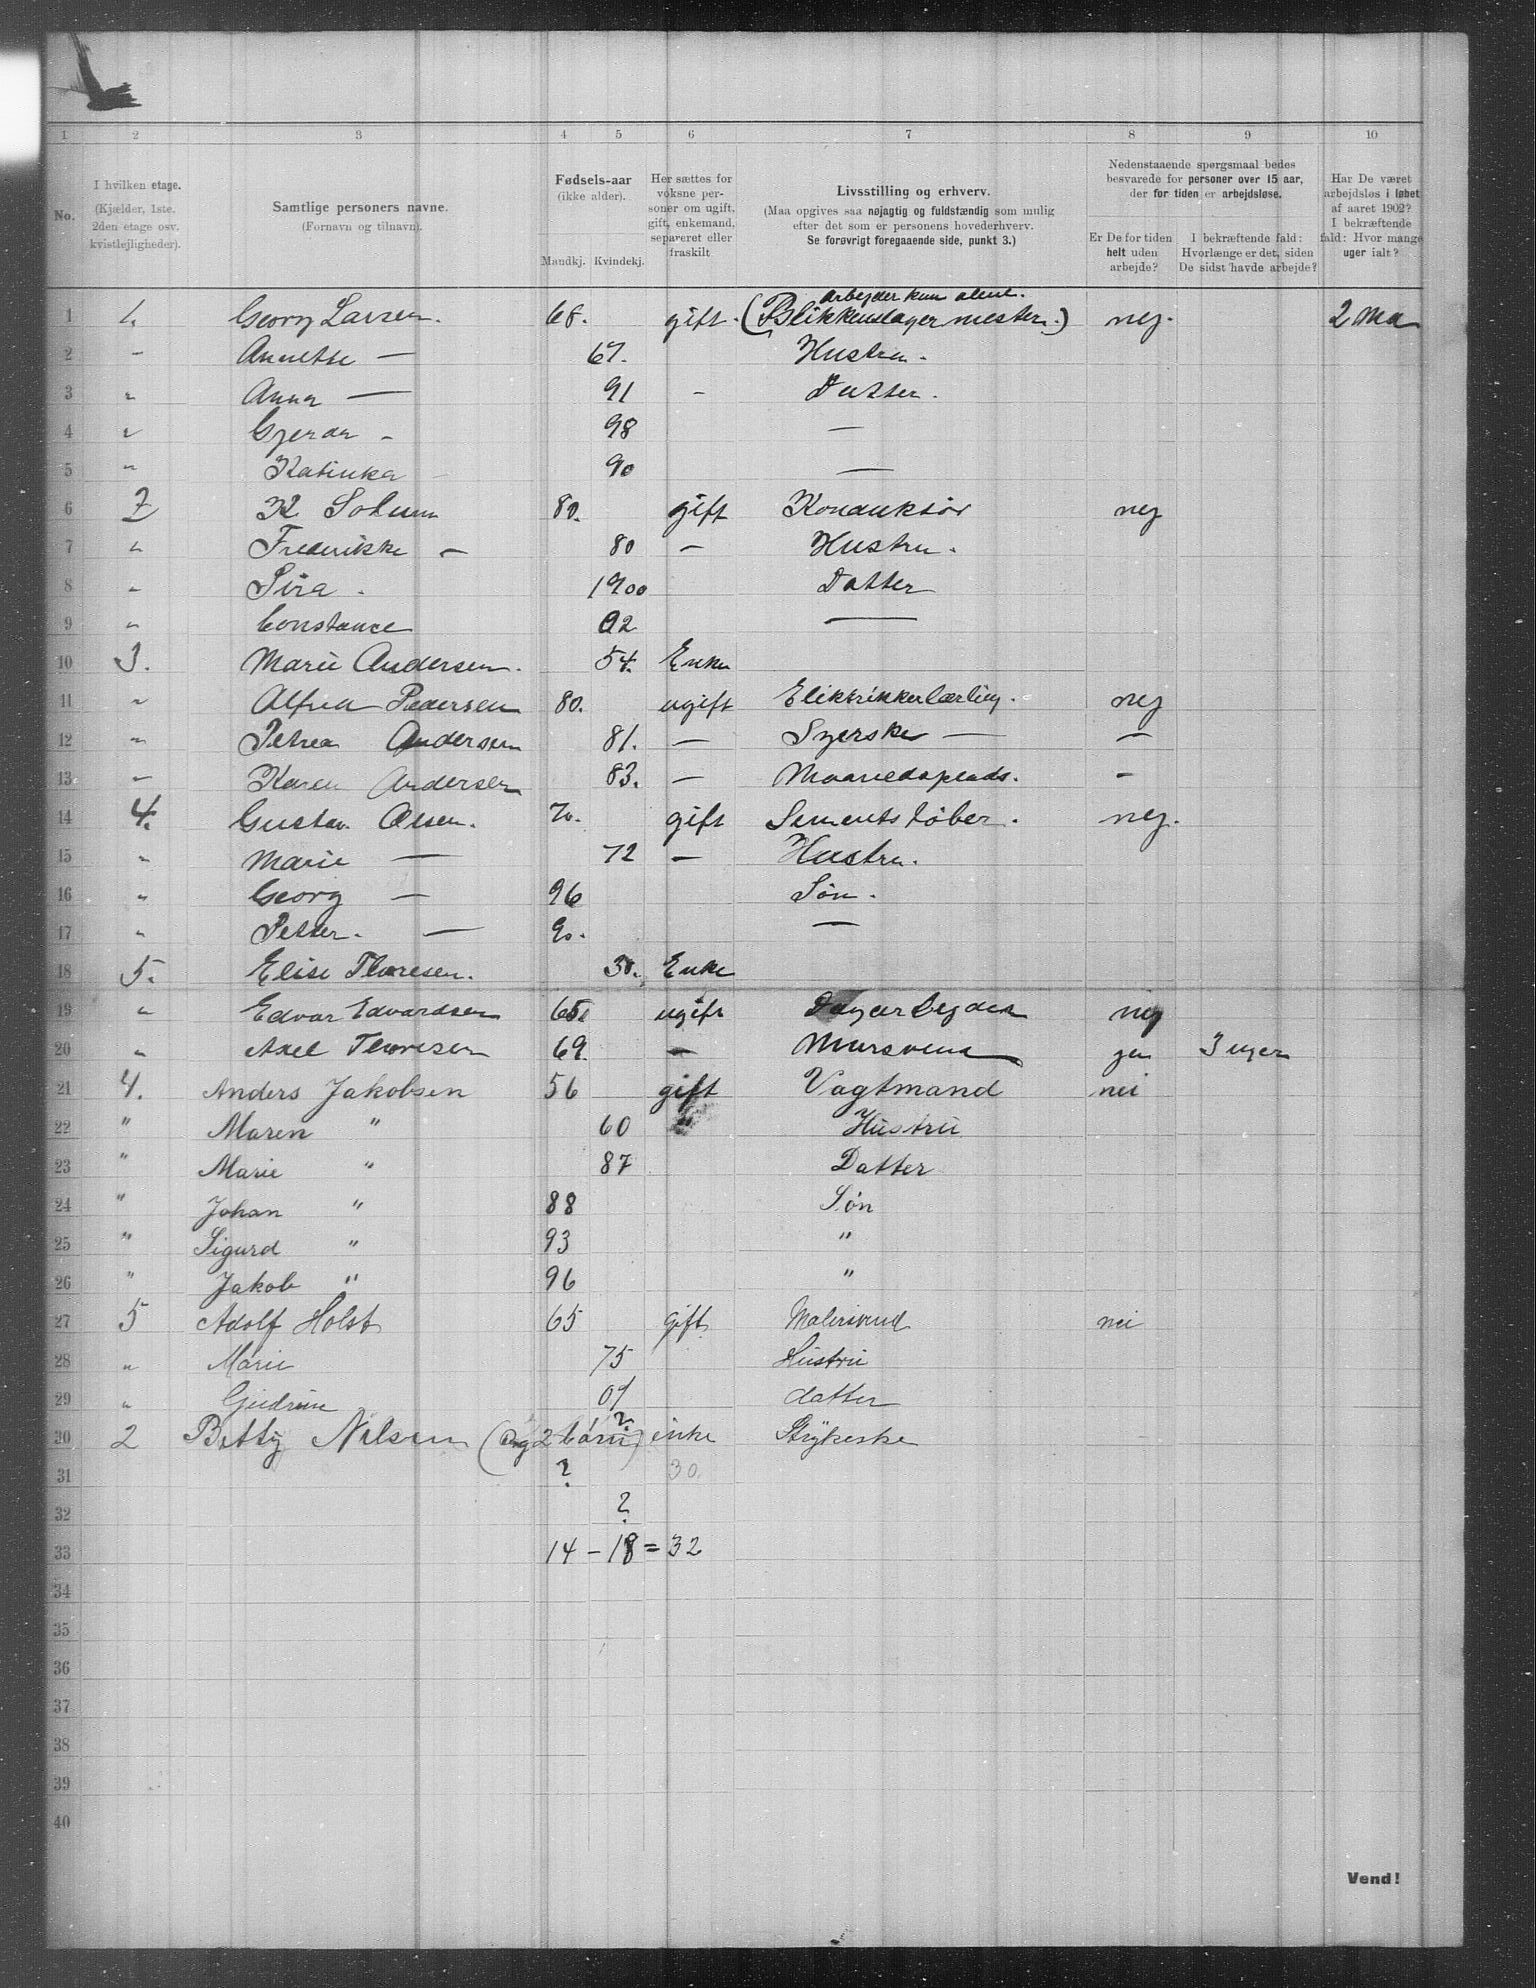 1 2 3 4 5 6 7 8 9 10
No.
I hvilken etage.
(Kjælder, 1ste.
2den etage osv.
kvistlejligheder).
Samtlige personers navne.
(Fornavn og tilnavn).
Fødsels-aar
(ikke alder).
Mandkj. Kvindekj.
Her sættes for
voksne per-
soner om ugift,
gift, enkemand,
separeret eller
fraskilt
Livsstilling og erhverv.
(Maa opgives saa nøjagtig og fuldstændig som mulig
efter det som er personens hovederhverv.
Se forøvrigt foregaaende side, punkt 3.)
Nedenstaaende spørgsmaal bedes
besvarede for personer over 15 aar,
der for tiden er arbejdsløse.
Er De for tiden
helt uden
arbejde?
I bekræftende fald:
Hvorlænge er det, siden
De sidst havde arbejde?
Har De været
arbejdsløs i løbet
af aaret 1902?
I bekræftende
fald: Hvor mange
uger ialt?
arbejder kun alene.
1 Georg Larsen. 68. gift. (Blikkenslagermester.) nej. 2 Ma
2 " Annette — 67. Hustru.
3 " Anna — 91 - Datter.
4 " Gjerda - 98 —
5 " Katinka 90 —
6 2 Kl Solum 80. gift Konduktör nej
7 " Frederikke — 80 — Hustru.
8 " 1900 Datter
9 " Constance 02 —
10 3. Marie Andersen. 54. Enke
11 " Alfred Pedersen 80. ugift Elektrikkerlærling. nej
12 " Petrea Andersen 81. — Syerske — —
13 " Karen Andersen 83. — Maanedsplads. -
14 4. Gustav Olsen. 70. gift Sementstøber. nej.
15 " Marie — 72 — Hustru.
16 " Georg — 96 Søn.
17 " Petter. — 90. —
18 5. Elise Thoresen. 30. Enke
19 " Edvar Edvardsen 65. ugift Dagarbejder nej
20 " Axel Thoresen 69. — Mursvend ja 3 uger
21 4. Anders Jakobsen 56 gift Vagtmand nei
22 " Maren " 60 " Hustru
23 " Marie " 87 Datter
24 " Johan " 88 Søn
25 " Sigurd " 93 "
26 " Jakob " 96 "
27 5 Adolf Holst 65 gift Malersvend nei
28 " Marie 75 Hustru
29 " Gudrun 01 datter
30 2 Betty Nilsen (og 2 børn) ? enke Strykeske
31 ? 30.
32 ?
33 14 - 18 = 32
34
35
36
37
38
39
40
Vend!